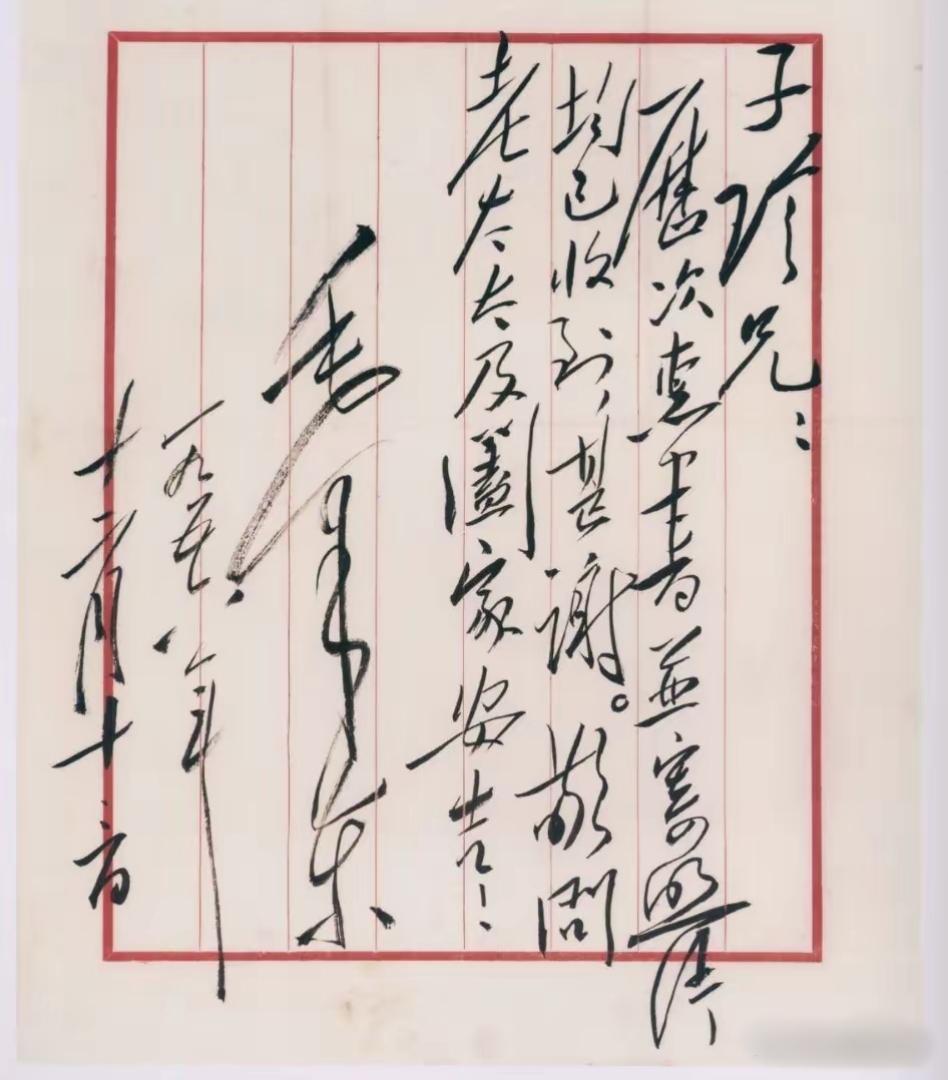 子珍兄：
歷次惠書並寄照片
均已收到，甚謝。敬问
老太太及阖家安吉！
毛泽东
一九五六年
十二月十日